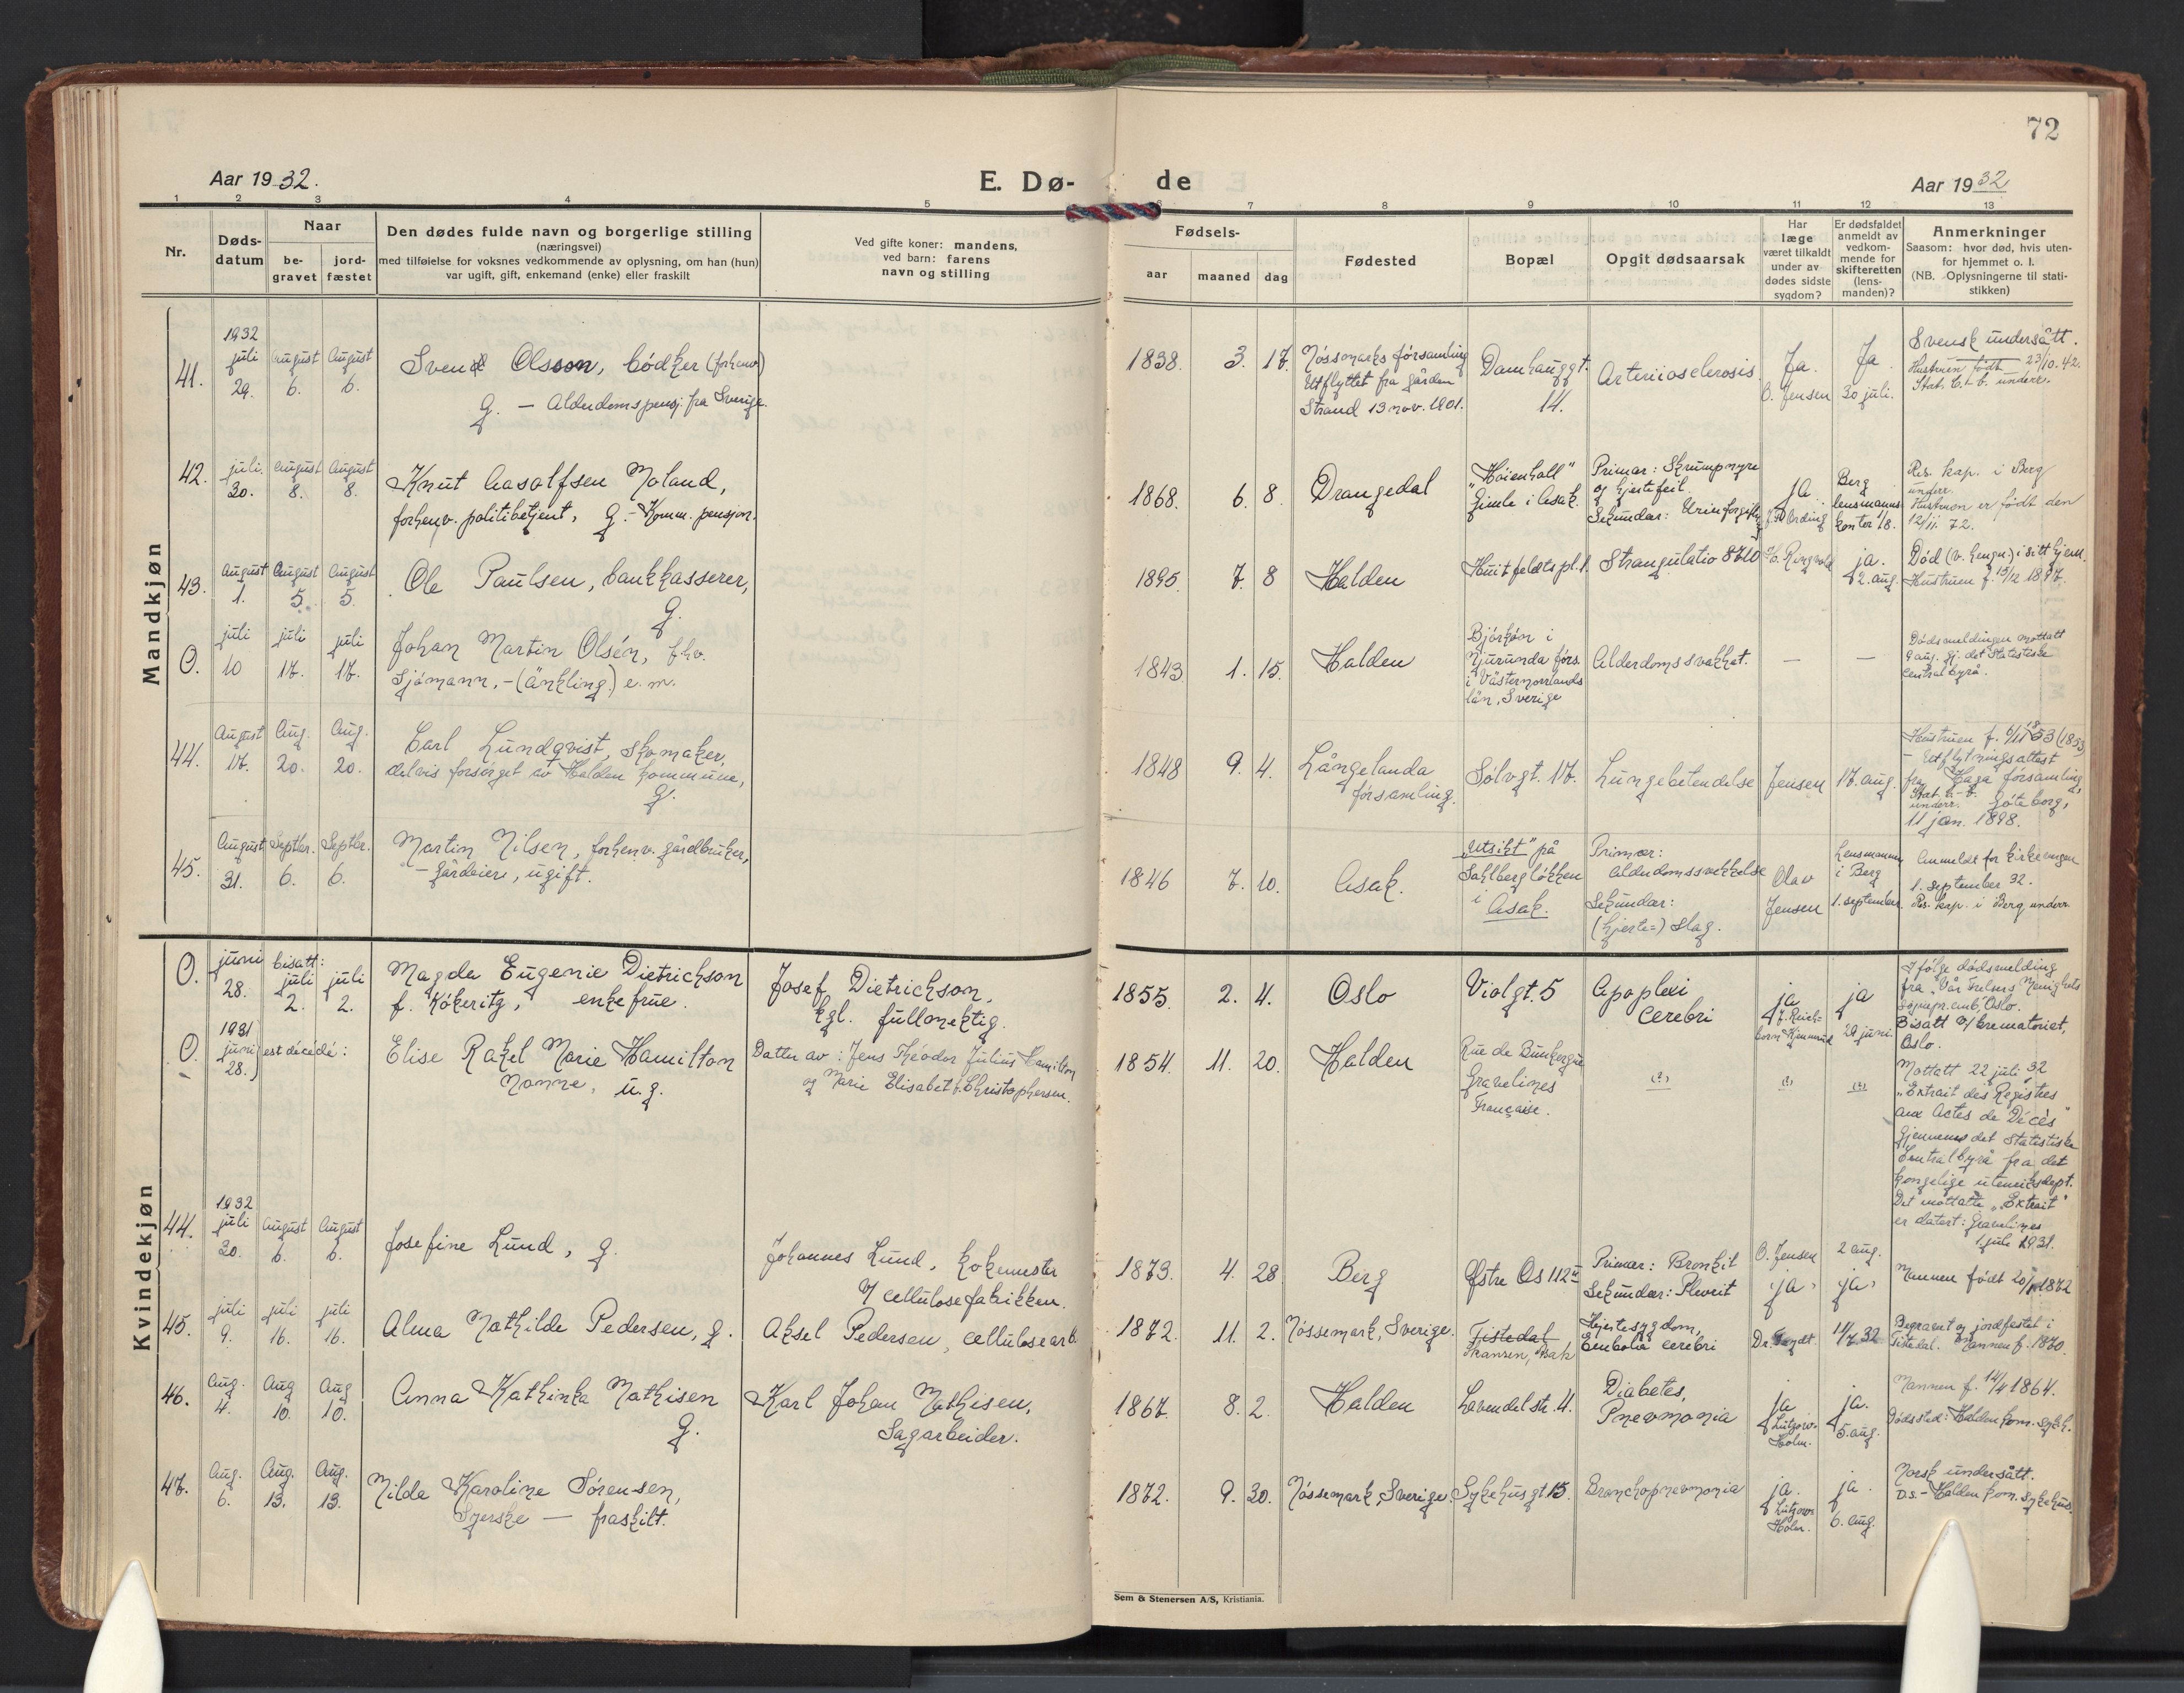 72
Aar 1932.
E. Dø-
de
Aar 1932
1 2 3 4 5 6 7 8 9 10 11 12 13
Nr.
Døds-
datum
Naar
be-
gravet
jord-
fæstet
Den dødes fulde navn og borgerlige stilling
(næringsvei)
med tilføielse for voksnes vedkommende av oplysning, om han (hun)
var ugift, gift, enkemand (enke) eller fraskilt
Ved gifte koner: mandens,
ved barn: farens
navn og stilling
Fødsels-
aar
maaned
dag
Fødested
Bopæl
Opgit dødsaarsak
Har
læge
været tilkaldt
under av
dødes sidste
sygdom?
Er dødsfaldet
anmeldt av
vedkom-
mende for
skifteretten
(lens-
manden)?
Anmerkninger
Saasom: hvor død, hvis uten-
for hjemmet o. l.
(NB. Oplysningerne til stati-
stikken)
Mandkjøn
41.
1932
juli
29.
August
6.
August
6.
Svend Olsson, bødker (forhenv.)
G. — Alderdomspensj. fra Sverige.
1838. 3. 17.
Nössemarks församling
Utflyttet fra gården
Strand 13 nov. 1901.
Damhauggt.
14.
Arteriosclerosis
Ja.
O. Jensen
Ja.
30 juli.
Svensk undersått.
Hustruen født 23/10.42.
Stat. C.-b. underr.
42.
juli.
30.
August
8.
August
8.
Knut Aasolfsen Moland,
forhenv. politibetjent, G. - Komm. pensjon.
1868. 6. 8.
Drangedal
"Høienhall"
Gimle i Asak.
Primær: Skrumpnyre
og hjertefeil.
Sekundær: Urinforgiftn.
ja.
Ording
Berg
lensmanns-
kontor 1/8.
Res. kap. i Berg
underr.
Hustruen er født den
12/11. 72.
43.
August
1.
August
5.
August
5.
Ole Paulsen, bankkasserer,
G.
1895. 7. 8
Halden
Huitfeldts pl. 1.
Strangulatio 8710
H. Ringvold
ja.
2. aug.
Død (v. hengn.) i sitt hjem.
Hustruen f. 15/12 1897.
O.
juli
10
juli
17.
juli
17.
Johan Martin Olsén, fhv.
Sjømann, - (änkling) e. m.
1843. 1. 15.
Halden
Björkön i
Njurunda förs.
i Västernorrlands
län, Sverige
Alderdomssvakhet.
—
—
Dødsmeldingen mottatt
9 aug. gj. det Statistiske
Centralbyrå.
44.
August
17.
Aug.
20.
Aug.
20.
Carl Lundqvist, skomaker,
delvis forsørget av Halden kommune,
G.
1848 9. 4.
Långelanda
församling.
Sølvgt. 17.
Lungebetendelse
Jensen
17. aug.
Hustruen f. 6/11 1853 (1853)
- Utflytningsattest
fra Haga församling,
Stat. C.-b.
underr. Göteborg,
11 jan. 1898.
45.
August
31.
Septbr.
6.
Septbr.
6.
Martin Nilsen, forhenv. gårdbruker,
- Gårdeiere, ugift.
1846 7. 10.
Asak.
"Utsikt" på
Sahlbergløkken
i Asak.
Primær:
Alderdomssvekkelse
Sekundær:
(hjerte=) slag.
Olav
Jensen
Lensmannen
i Berg
1. september.
Anmeldt for kirkevergen
1. september 32.
Res. kap. i Berg underr.
Kvindekjøn
O.
juni
28.
bisatt:
juli
2.
juli
2.
Magda Eugenie Dietrichson
f. Kökeritz, enkefrue.
Josef Dietrichson,
kgl. fullmektig.
1855. 2. 4.
Oslo
Violgt. 5
Apoplexi
Cerebri
ja
ja
29 juni.
Ifølge dødsmelding
fra "Vår Frelsers Menighets
sognepr. emb." Oslo.
Bisatt i/ krematoriet,
Oslo.
O.
1931
juni
28.)
est décédé:
Elise Rakel Marie Hamilton
Nonne, u. g.
Datter av: Jens Théodor Julius Hamilton
og Marie Elisabet f. Christophersen.
1854. 11. 20.
Halden
Rue de Dunkerque
Gravelines
Française.
(?)
(?)
(?)
Mottatt 22 juli 32
"Extrait des Registres
aux Actes de Décès"
gjennem det Statistiske
Centralbyrå fra det
kongelige utenriksdept.
Det mottatte "Extrait"
er datert: Gravelines
1. juli 1931.
44.
1932
juli
30.
August
6.
August
6.
Josefine Lund, g.
Johannes Lund, kokemester
v/ cellulosefabrikken.
1873. 4. 28
Berg
Østre Os 112
Primær: Bronkit
Sekundær: Plevrit
O. Jensen
ja.
2 aug.
ja.
Mannen født 1872
45.
juli
9.
juli
16.
juli
16.
Alma Mathilde Pedersen, g.
Aksel Pedersen, cellulosearb.
1872. 11. 2.
Nössemark, Sverige.
Tistedal
Skansen, Asak
Hjertesygdom,
Embolia cerebri
11/7 32
Begravet og jordfestet i
Tistedal. Mannen f. 1870.
46.
Aug.
4.
Aug
10.
Aug
10.
Anna Kathinka Mathisen
G.
Karl Johan Mathisen,
Sagarbeider.
1867. 8. 2.
Halden
Lavendelstr. 4.
Diabetes,
Pnevmonia
ja
Lützow-
Holm.
ja.
5. aug.
Mannen f. 14/4 1864.
Dødssted: Halden kom. sykeh.
47.
Aug.
6.
Aug.
13.
Aug.
13.
Milda Karoline Sørensen,
Syerske — fraskilt.
1872. 9. 30.
Nössemark, Sverige.
Sykehusgt 15.
Bronchopnevmonia
ja.
Lützow-
Holm.
ja.
6. aug.
Norsk undersått.
D.S. - Halden kom. sykehus.
Sem & Stenersen A/S, Kristiania.